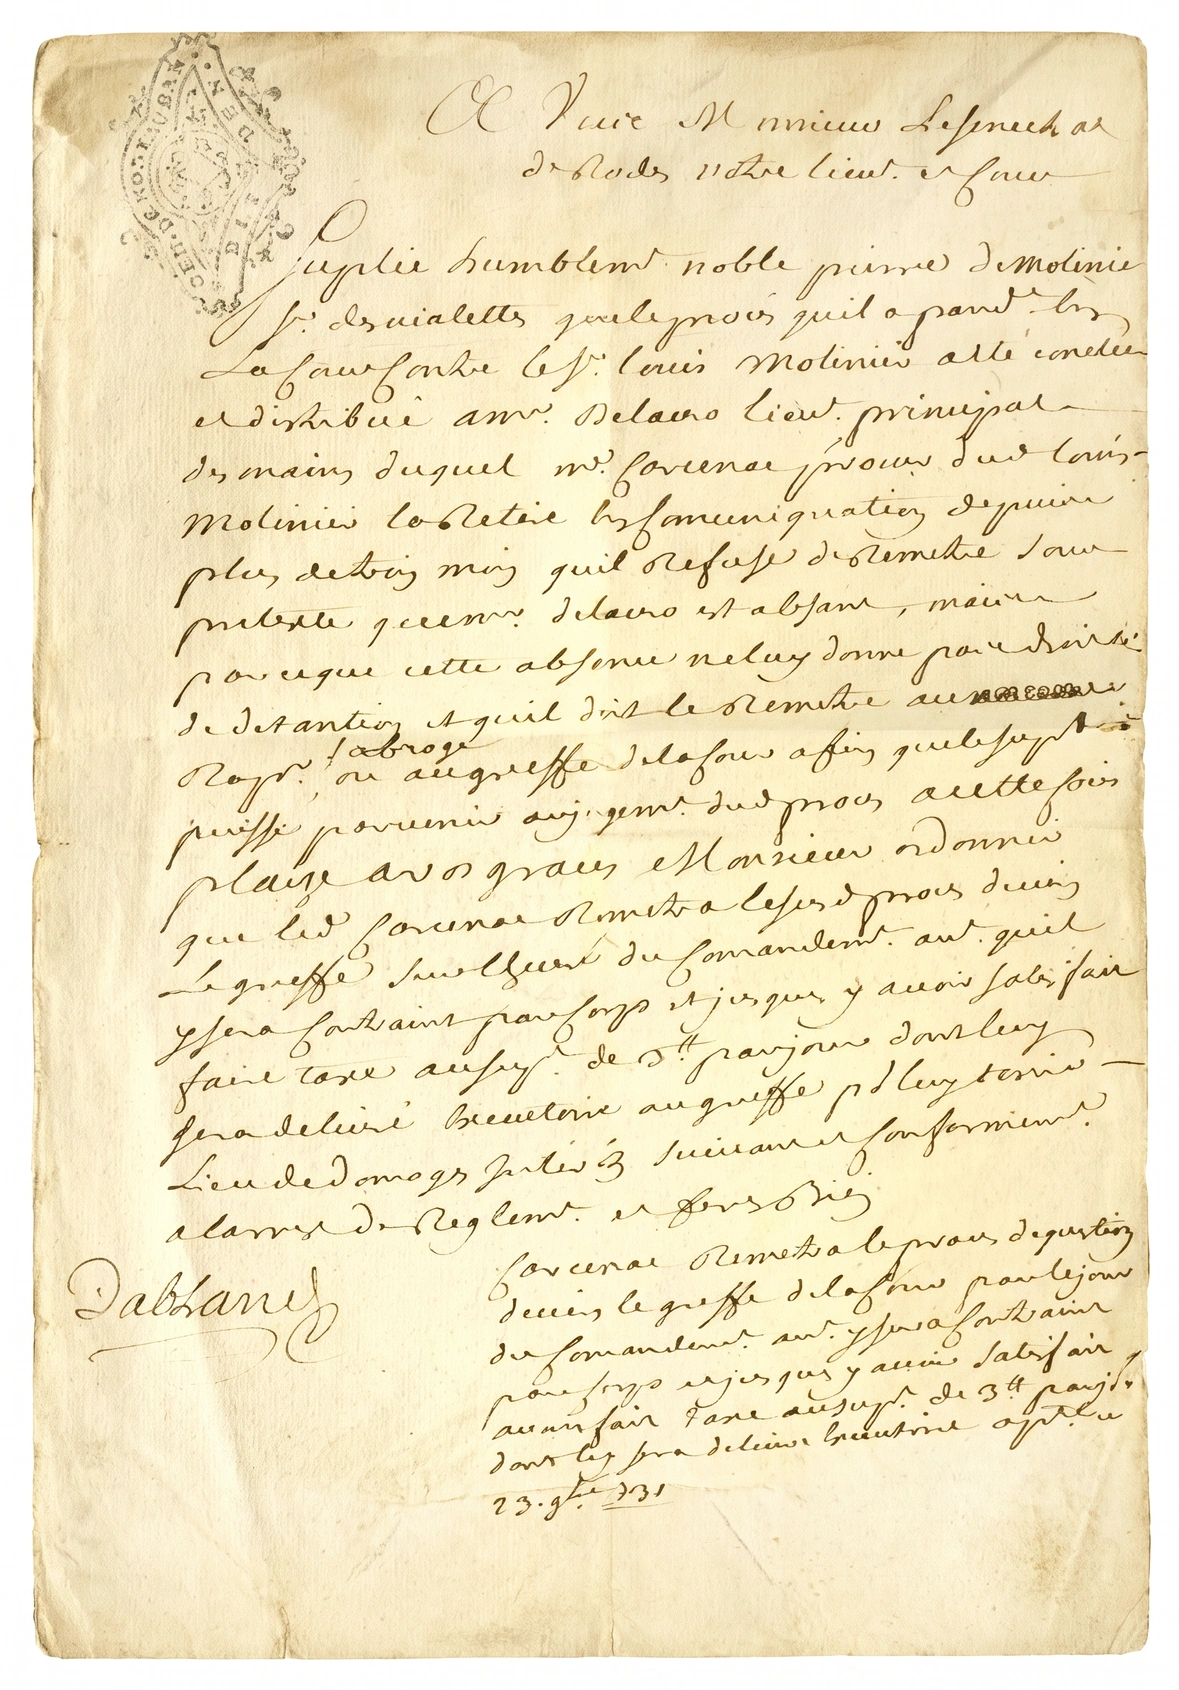 A Vous Monsieur Le senechal
de Rodes votre lieut. et Cour
Suplie humblemt. noble pierre de Molinie
sr. desvialettes que le procés quil a pandt. en
La Cour Contre le sr. louis Molinier a esté conclu
et distribué a mr. Delauro lieut. principal
des mains duquel me. Carcenac procur dud louis
Molinier la Retiré en Comuniquation depuis
plus de trois mois quil Refuse de Remetre sous
pretexte que mr. delauro est absant, mais
par ceque cette absence ne luy donne pas
de detantion et quil doit le Remetre au
Rapr. ou au greffe de la Cour afin que le supt
puisse parvenir au jugemt. dud proces a cette fois
plaize a vos graces Monsieur ordonner
que led Carcenac Remetra le susd proces devers
Le greffe du Comandemt. aut. quil
y sera Contraint par Corps et jusques y avoir satisfait
faire taxe au supt. de 3tt par jour dont luy
sera delivré executoire au greffe pr luy tenir
Lieu de domages interets suivant et Conformemt.
a larrest de Reglemt. et feres Bien
Carcenac Remetra le proces de question
devers le greffe de la Cour par le jour
du Comandemt. aut. y sera Contraint
par Corps et jusques y avoir satisfait
avons fait taxe au supt. de 3tt par jr
dont luy sera delivré executoire apt. ce
23. 9bre 1731
Dablanc